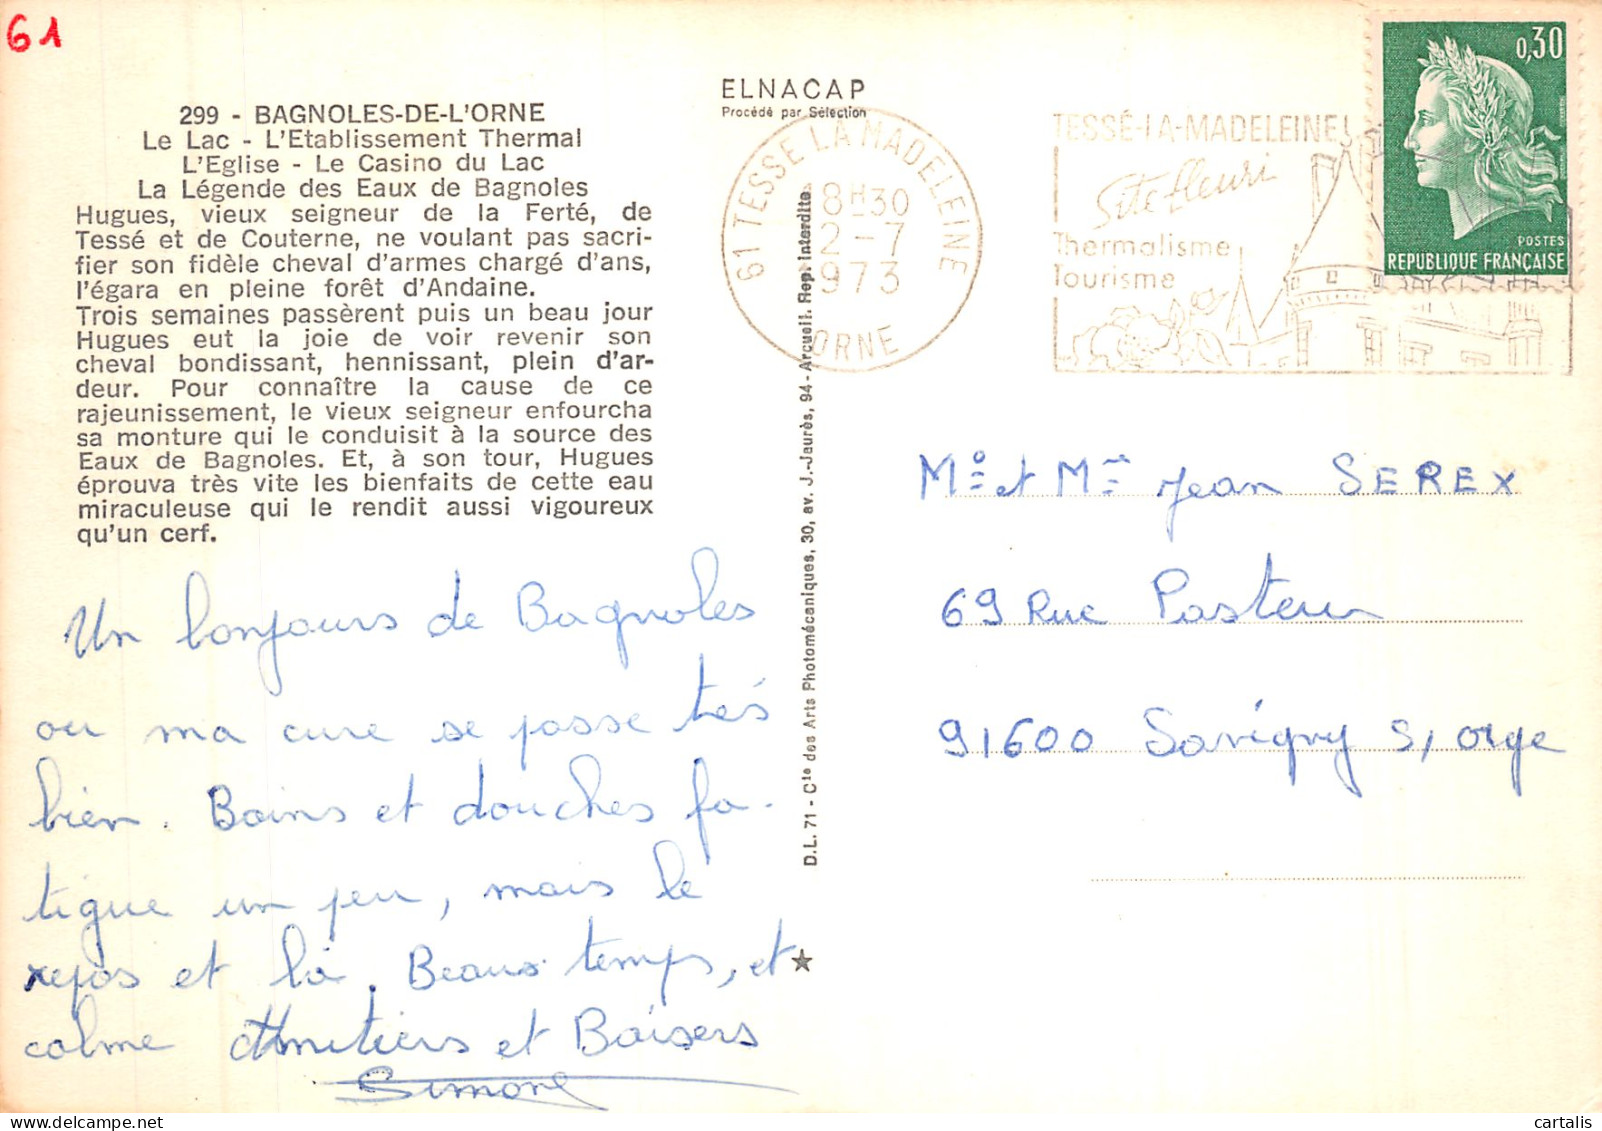 61
299 - BAGNOLES-DE-L'ORNE
Le Lac - L'Etablissement Thermal
L'Eglise - Le Casino du Lac
La Légende des Eaux de Bagnoles
Hugues, vieux seigneur de la Ferté, de
Tessé et de Couterne, ne voulant pas sacri-
fier son fidèle cheval d'armes chargé d'ans,
l'égara en pleine forêt d'Andaine.
Trois semaines passèrent puis un beau jour
Hugues eut la joie de voir revenir son
cheval bondissant, hennissant, plein d'ar-
deur. Pour connaître la cause de ce
rajeunissement, le vieux seigneur enfourcha
sa monture qui le conduisit à la source des
Eaux de Bagnoles. Et, à son tour, Hugues
éprouva très vite les bienfaits de cette eau
miraculeuse qui le rendit aussi vigoureux
qu'un cerf.
Un bonjours de Bagnoles
ou ma cure se passe très
bien. Bains et douches fa-
tigue un peu, mais le
repos et là. Beaus temps, et
calme Amitiers et Baisers
Simone
ELNACAP
Procédé par Sélection
D.L. 71 - Cie des Arts Photomécaniques, 30, av. J.-Jaurès, 94-Arcueil. Rep. Interdite
61 TESSE LA MADELEINE
18H30
2-7
1973
ORNE
TESSÉ-LA-MADELEINE
Site fleuri
Thermalisme
Tourisme
0,30
POSTES
REPUBLIQUE FRANÇAISE
Mr et Mme Jean SEREX
69 Rue Pasteur
91600 Savigny s/ orge
cartalis | delcampe.net